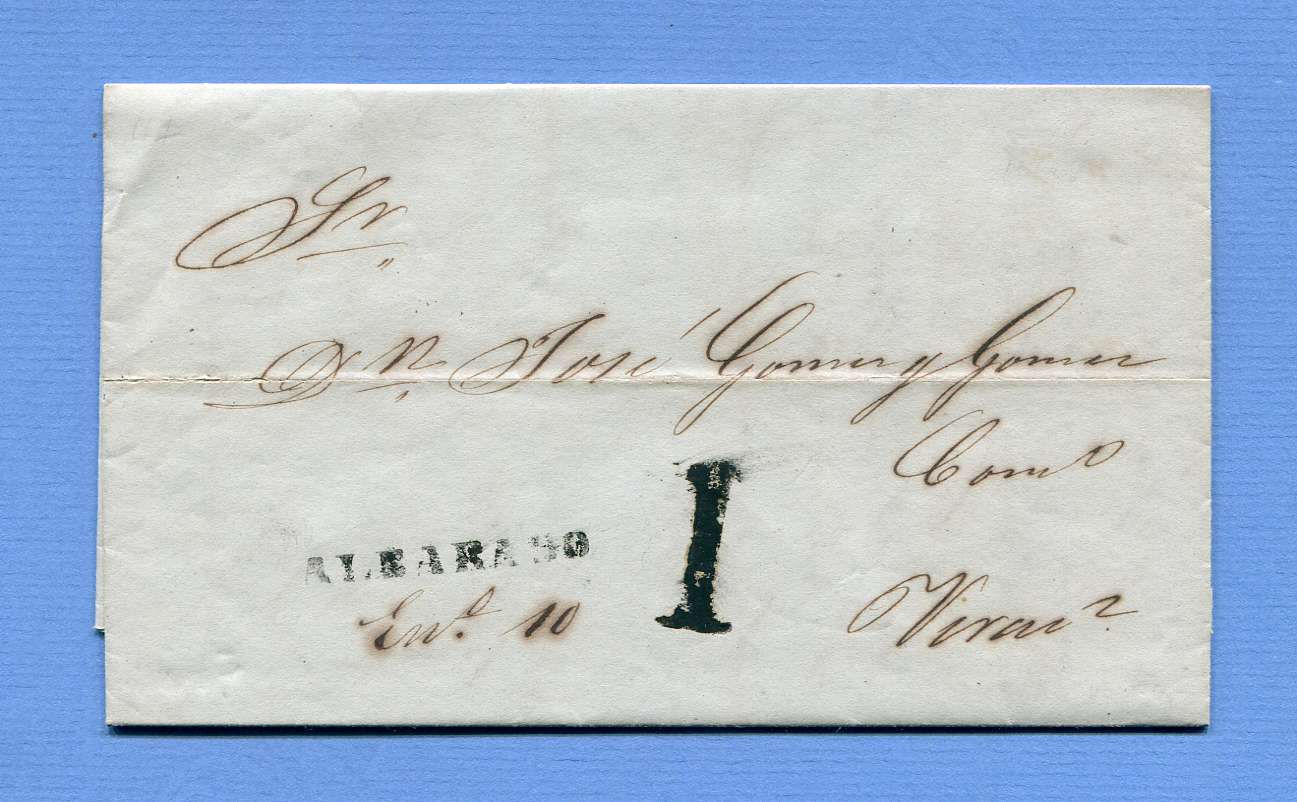 Sr
Dn José Gomez y Gomez
Como
I
ALBARADO
Eno. 10
Veracz.